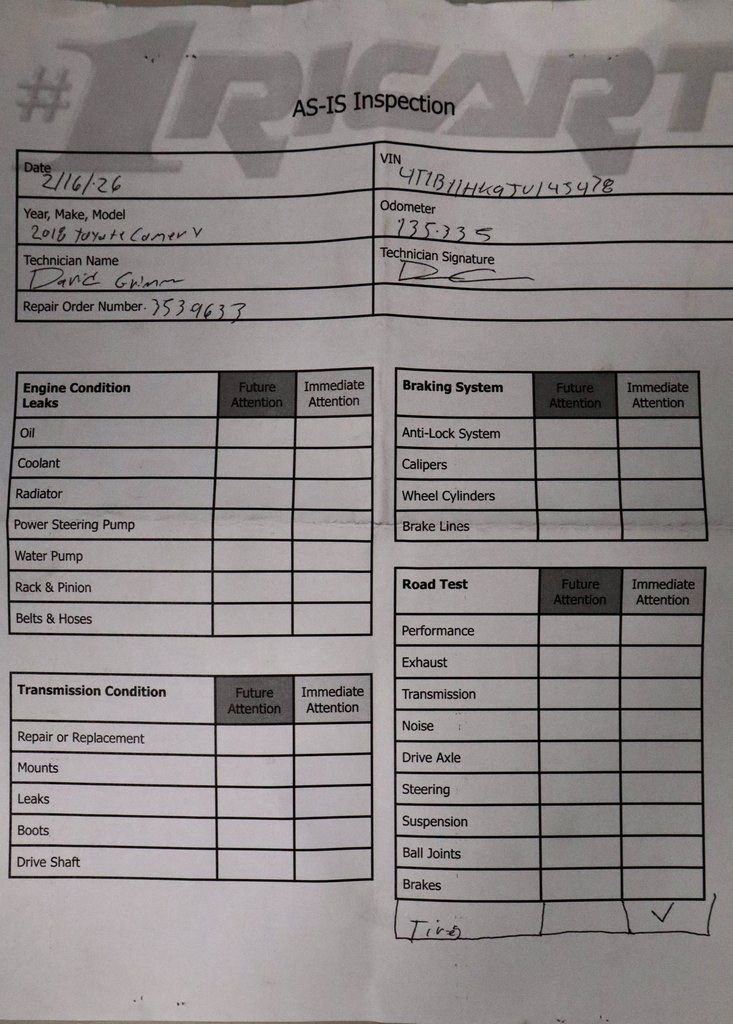 #1 RICART
AS-IS Inspection
Date 2/16/26
VIN 4T1B11HK9JU145478
Year, Make, Model 2018 Toyota Camery
Odometer 135,335
Technician Name David Grimm
Technician Signature
Repair Order Number 3539633
Engine Condition Leaks Future Attention Immediate Attention
Oil
Coolant
Radiator
Power Steering Pump
Water Pump
Rack & Pinion
Belts & Hoses
Transmission Condition Future Attention Immediate Attention
Repair or Replacement
Mounts
Leaks
Boots
Drive Shaft
Braking System Future Attention Immediate Attention
Anti-Lock System
Calipers
Wheel Cylinders
Brake Lines
Road Test Future Attention Immediate Attention
Performance
Exhaust
Transmission
Noise
Drive Axle
Steering
Suspension
Ball Joints
Brakes
Tires ✓